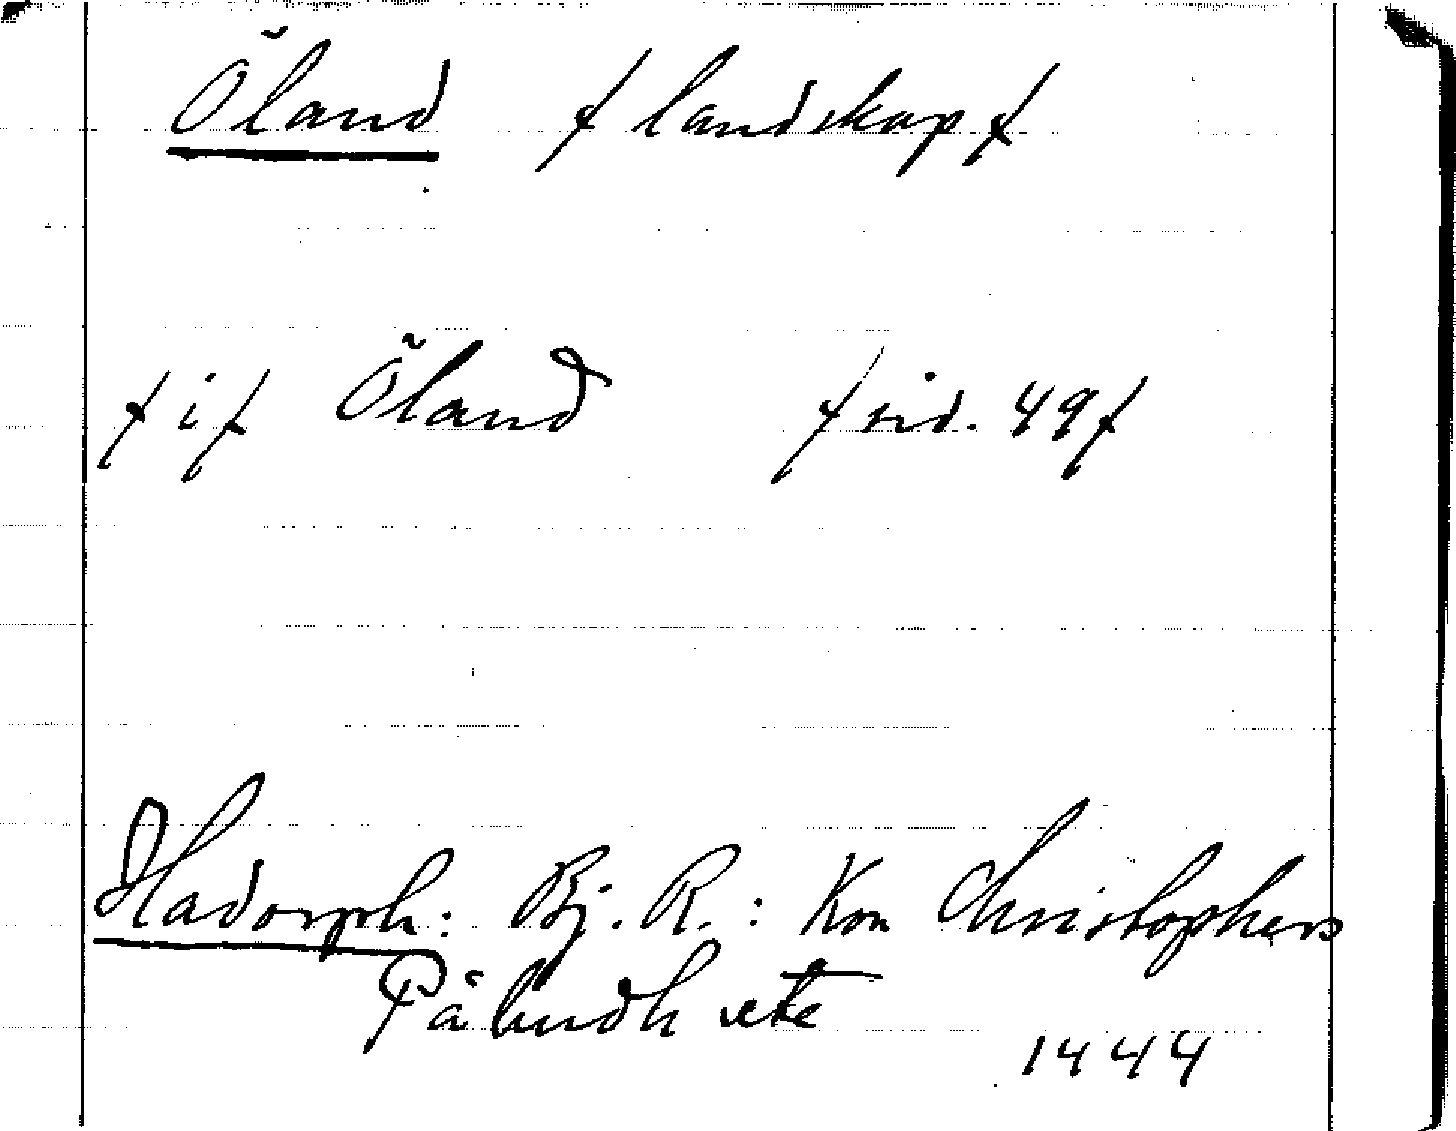 Öland / landskap /
/ i / Öland / sid. 49 /
Hadorph: Bj. R.: Kon Christophers
Påbudh etc
1444